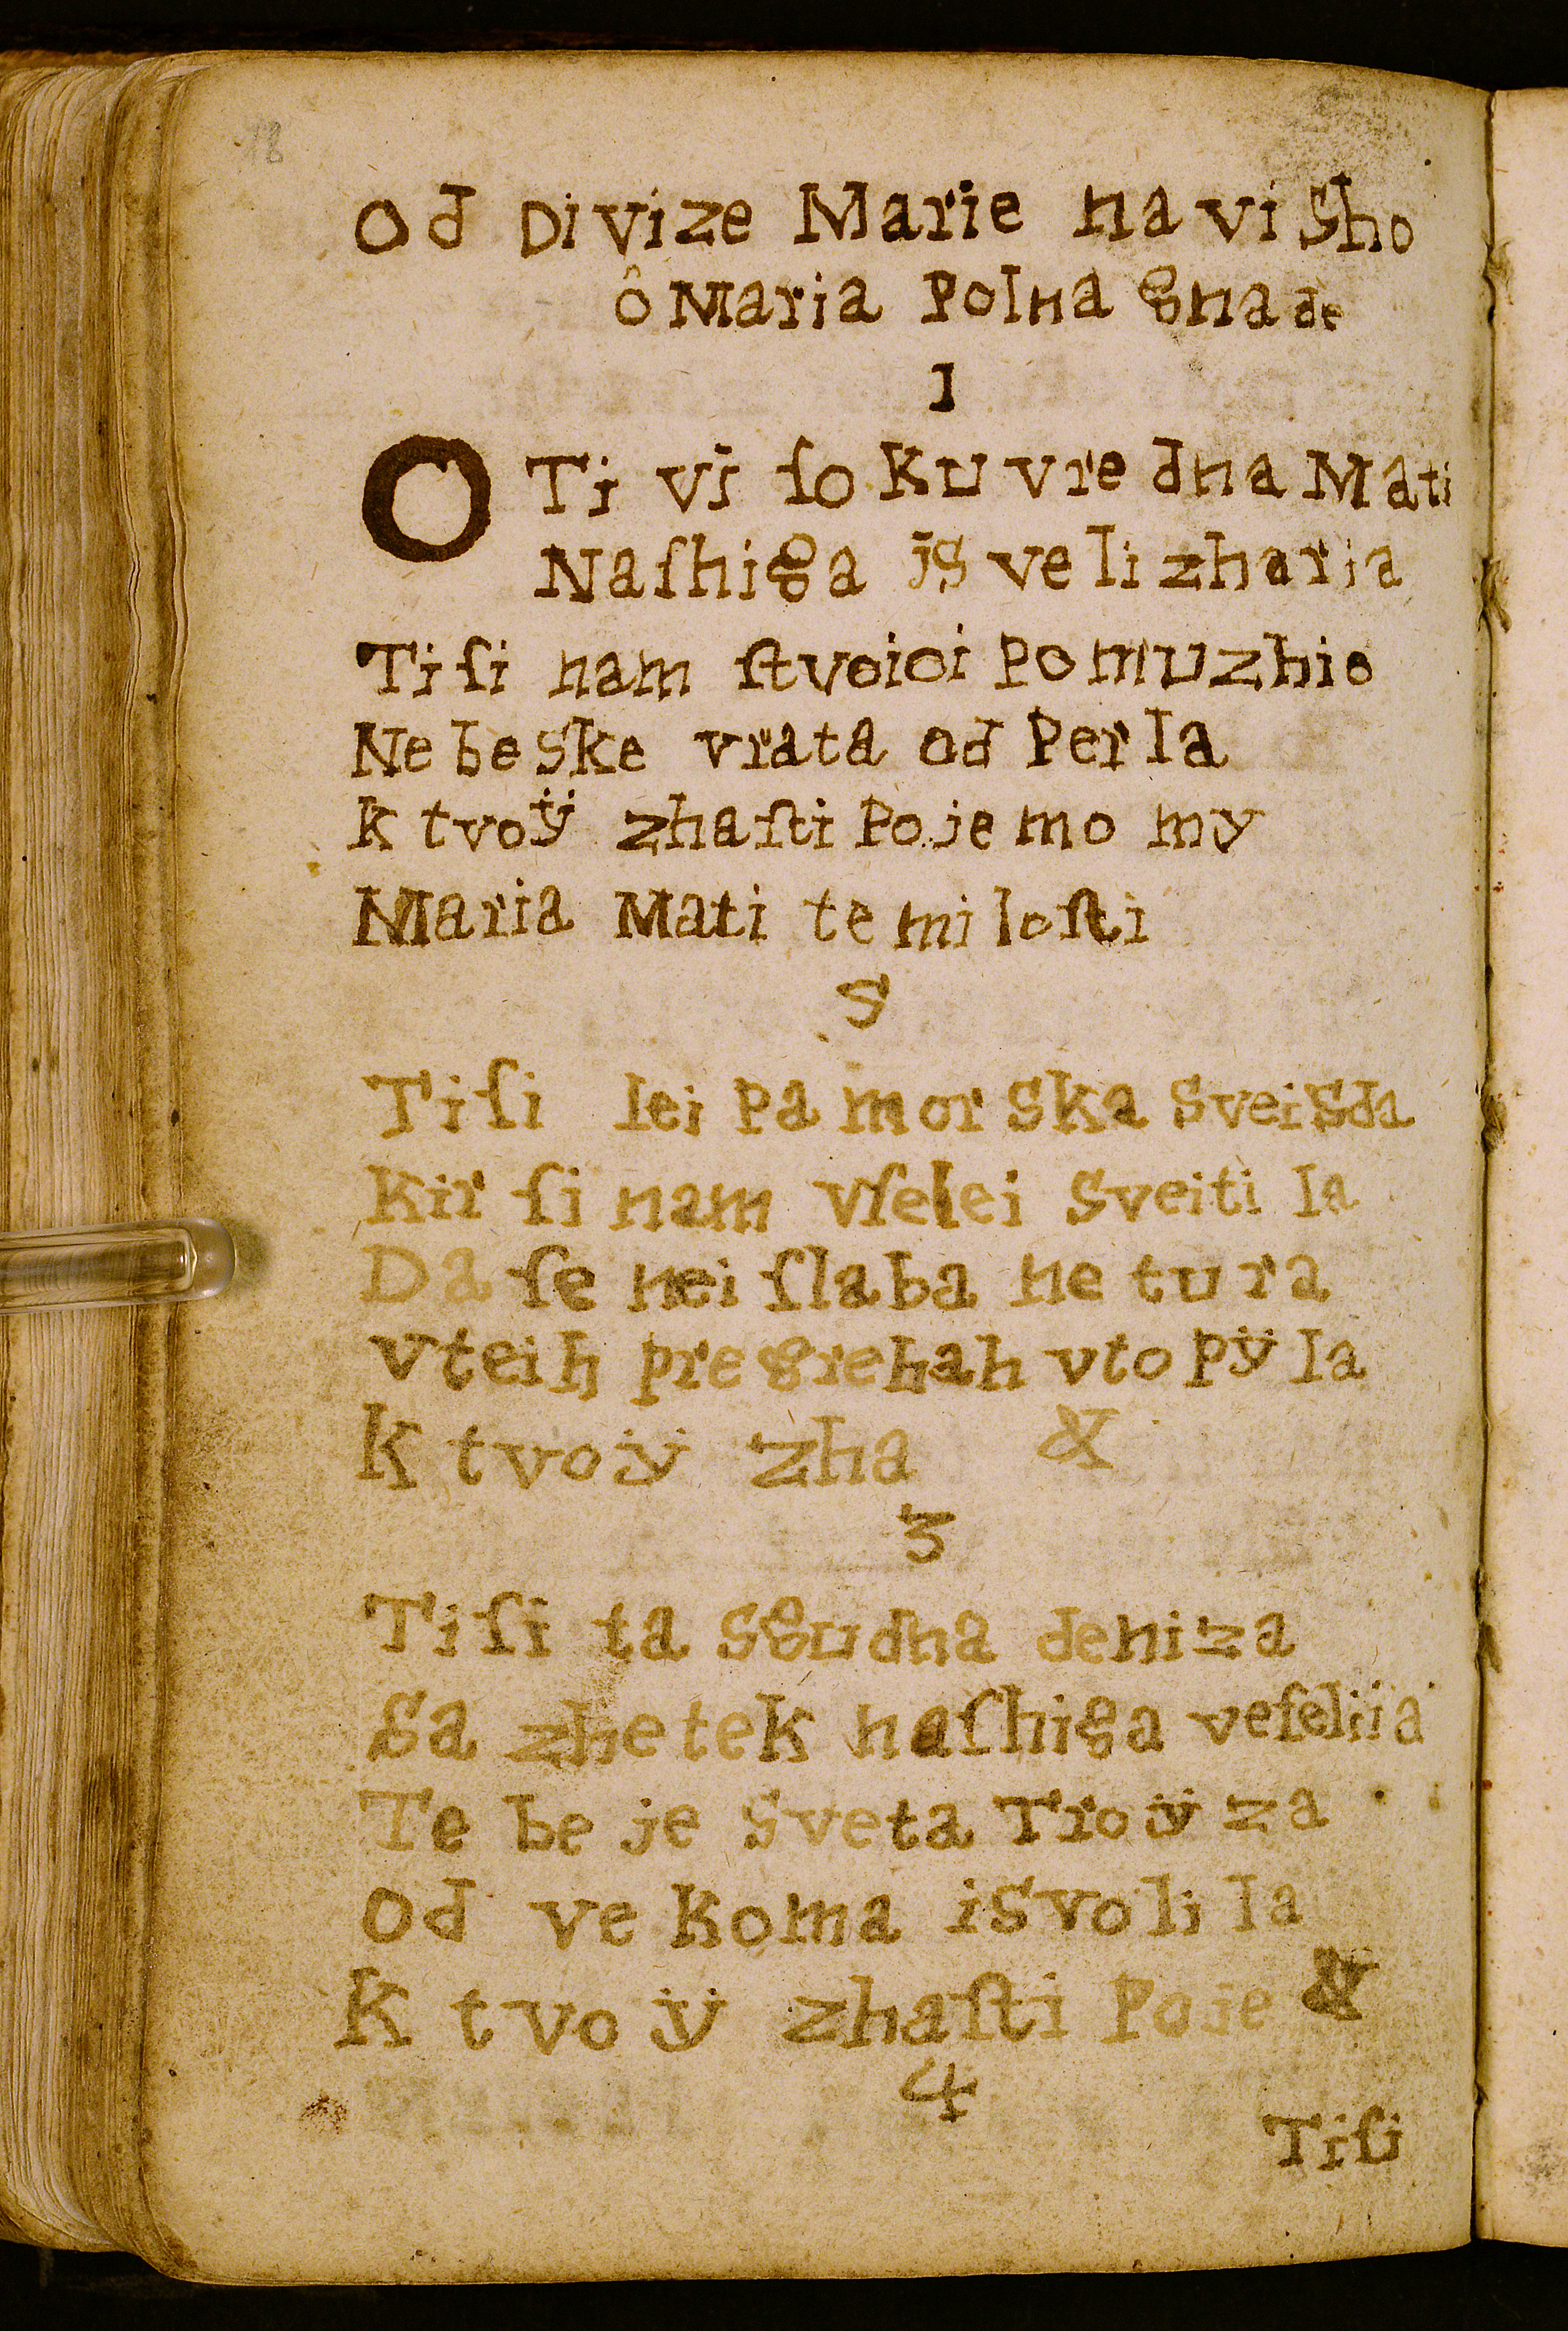 18
Od Divize Marie na viSho
ô Maria Polna gnade
1
O Ti viſoku vredna Mati
Naſhiga jsvelizharja
Tiſi nam ſtvoioi pomuzhio
Nebeske vrata od Perla
K tvoÿ zhaſti Pojemo my
Maria Mati te miloſti
S
Tiſi lei pa morska SveiSda
Kir ſi nam vſelei Sveitila
Da ſe nei ſlaba netura
vteih pregrehah vtopÿla
K tvoÿ zha &
3
Tiſi ta Sgudna deniza
Sa zhetek naſhiga veſeliia
Tebe je Sveta Troÿza
Od vekoma iSvolila
K tvoÿ zhaſti Poje &
4
Tiſi